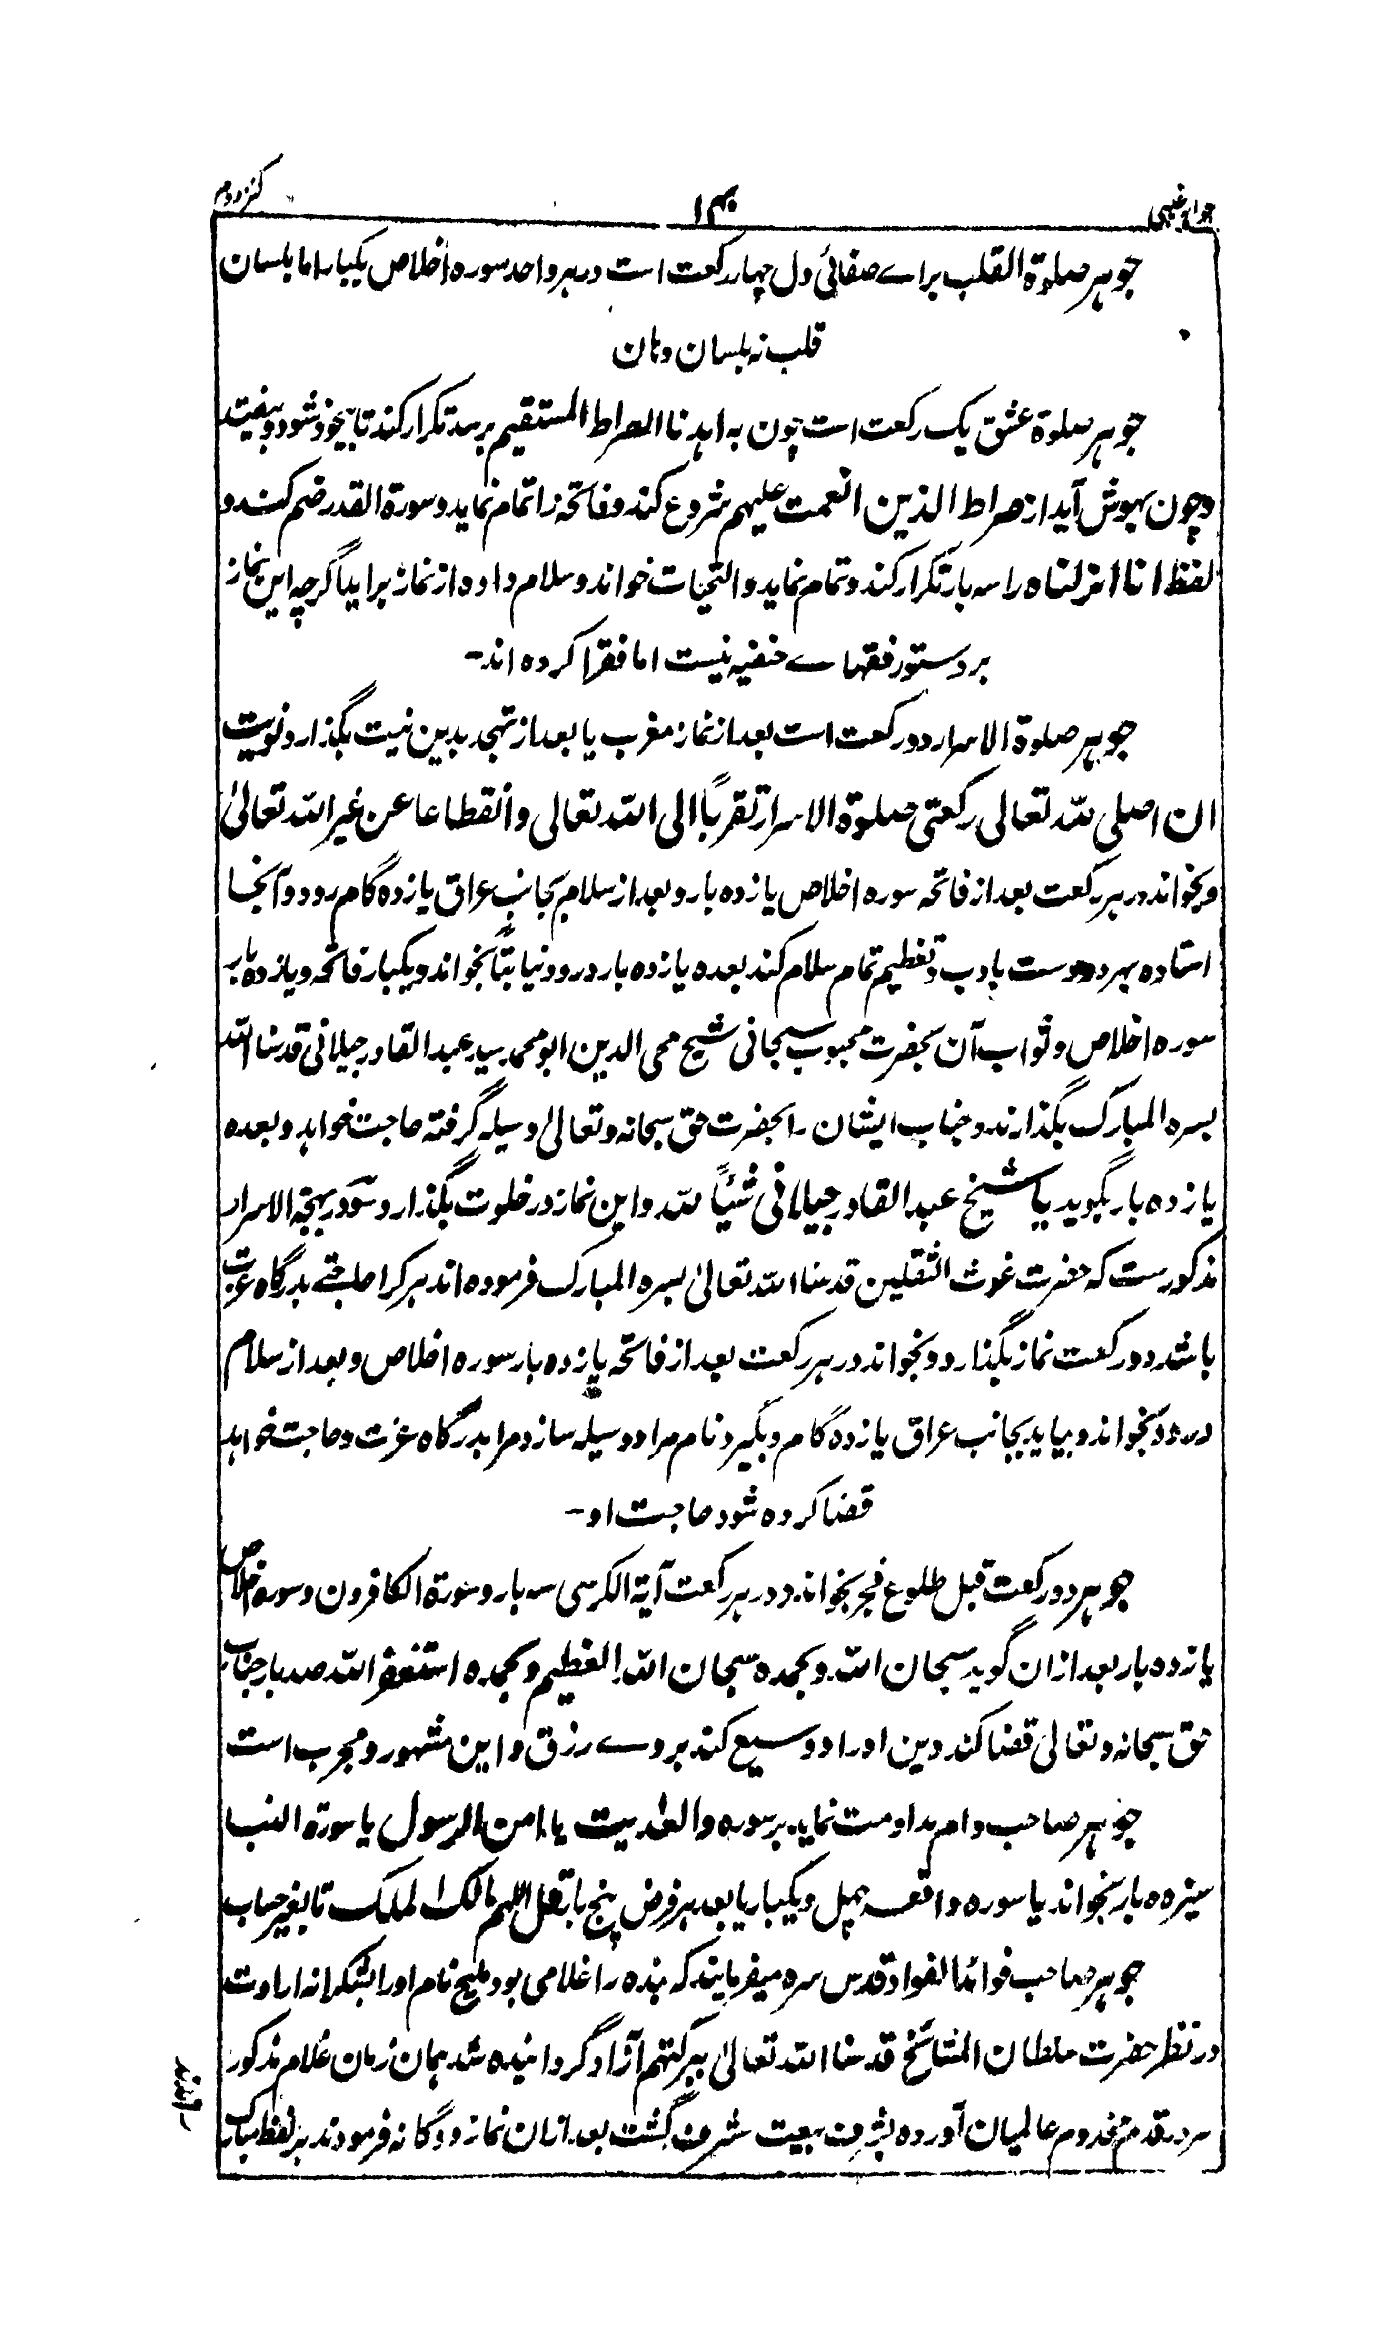 جواہر غیبی ۱۴۰ کنز دوم
جوہر صلوٰة القلب براے صفائی دل چہار رکعت است در ہر واحد سورہ اخلاص یکبار اما بلسان
قلب نہ بلسان دہان
جوہر صلوة عشق یک رکعت است چون بہ اہدنا الصراط المستقیم برسد تکرار کند تا بیخود شود و بیفتد
و چون بہوش آید از صراط الذین انعمت علیہم شروع کند و فاتحہ را تمام نماید و سورة القدر ضم کند و
لفظ انا انزلناہ را سہ بار تکرار کند و تمام نماید و التحیات خواند و سلام دادہ از نماز براید اگرچہ این نماز
بر دستور فقہاے حنفیہ نیست اما فقرا کردہ اند۔
جوہر صلوة الاسرار دو رکعت است بعد از نماز مغرب یا بعد از تہجد بدین نیت بگذارد نویت
ان اصلی للہ تعالی رکعتی صلوة الاسرار تقرباً الی اللہ تعالی و انقطاعا عن غیر اللہ تعالیٰ
و بخواند در ہر رکعت بعد از فاتحہ سورہ اخلاص یازدہ بار و بعد از سلام بجانب عراق یازدہ گام رود و آنجا
استادہ بہر دو دست بادب و تعظیم تمام سلام کند بعدہ یازدہ بار درود بخواند و یکبار فاتحہ و یازدہ بار
سورہ اخلاص و ثواب آن بحضرت محبوب سبحانی شیخ محی الدین ابو محمد سید عبد القادر جیلانی قدسنا اللہ
بسرہ المبارک بگذارند و جناب ایشان را بحضرت حق سبحانہ و تعالیٰ وسیلہ گرفتہ حاجت خواہد و بعدہ
یازدہ بار بگوید یا شیخ عبد القادر جیلانی شیئاً للہ و این نماز در خلوت بگذارد و در بہجة الاسرار
مذکورست کہ حضرت غوث الثقلین قدسنا اللہ تعالیٰ بسرہ المبارک فرمودہ اند ہر کرا حاجتے بدرگاہ عزت
باشد دو رکعت نماز بگذارد و بخواند در ہر رکعت بعد از فاتحہ یازدہ بار سورہ اخلاص و بعد از سلام
درود بخواند و بیاید بجانب عراق یازدہ گام و بگیرد نام مرا و وسیلہ سازد مرا بدرگاہ عزت و حاجت خواہد
قضا کردہ شود حاجت او۔
جوہر دو رکعت قبل طلوع فجر بخواند و در ہر رکعت آیة الکرسی سہ بار و سورة الکافرون و سورہ اخلاص
یازدہ بار بعد ازان گوید سبحان اللہ و بحمدہ سبحان اللہ العظیم و بحمدہ استغفر اللہ صد بار جناب
حق سبحانہ و تعالیٰ قضا کند دین او را و وسیع کند بروے رزق و این مشہور و مجرب است
جوہر صاحب وام مداومت نماید بر سورہ والعٰدیت یا امن الرسول یا سورة النبا
سیزدہ بار بخواند یا سورہ واقعہ چہل و یکبار یا بعد ہر فرض پنج بار قل اللہم مالک الملک تا بغیر حساب
جوہر صاحب فوائد الفواد قدس سرہ میفرمایند کہ بندہ را غلامی بود ملیح نام او را بشکرانہ ارادت
در نظر حضرت سلطان المشائخ قدسنا اللہ تعالیٰ ببرکتہم آزاد گردانیدہ شد ہمان زمان غلام مذکور
سر در قدم مخدوم عالمیان آوردہ بشرف بیعت مشرف گشت بعد ازان نماز دوگانہ فرمودند بر لفظ مبارک